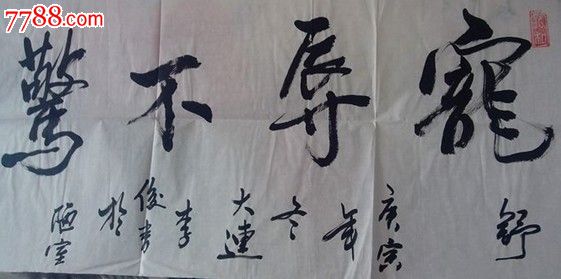 7788.com
寵辱不驚
舒庚寅年冬大連李俊於陋室